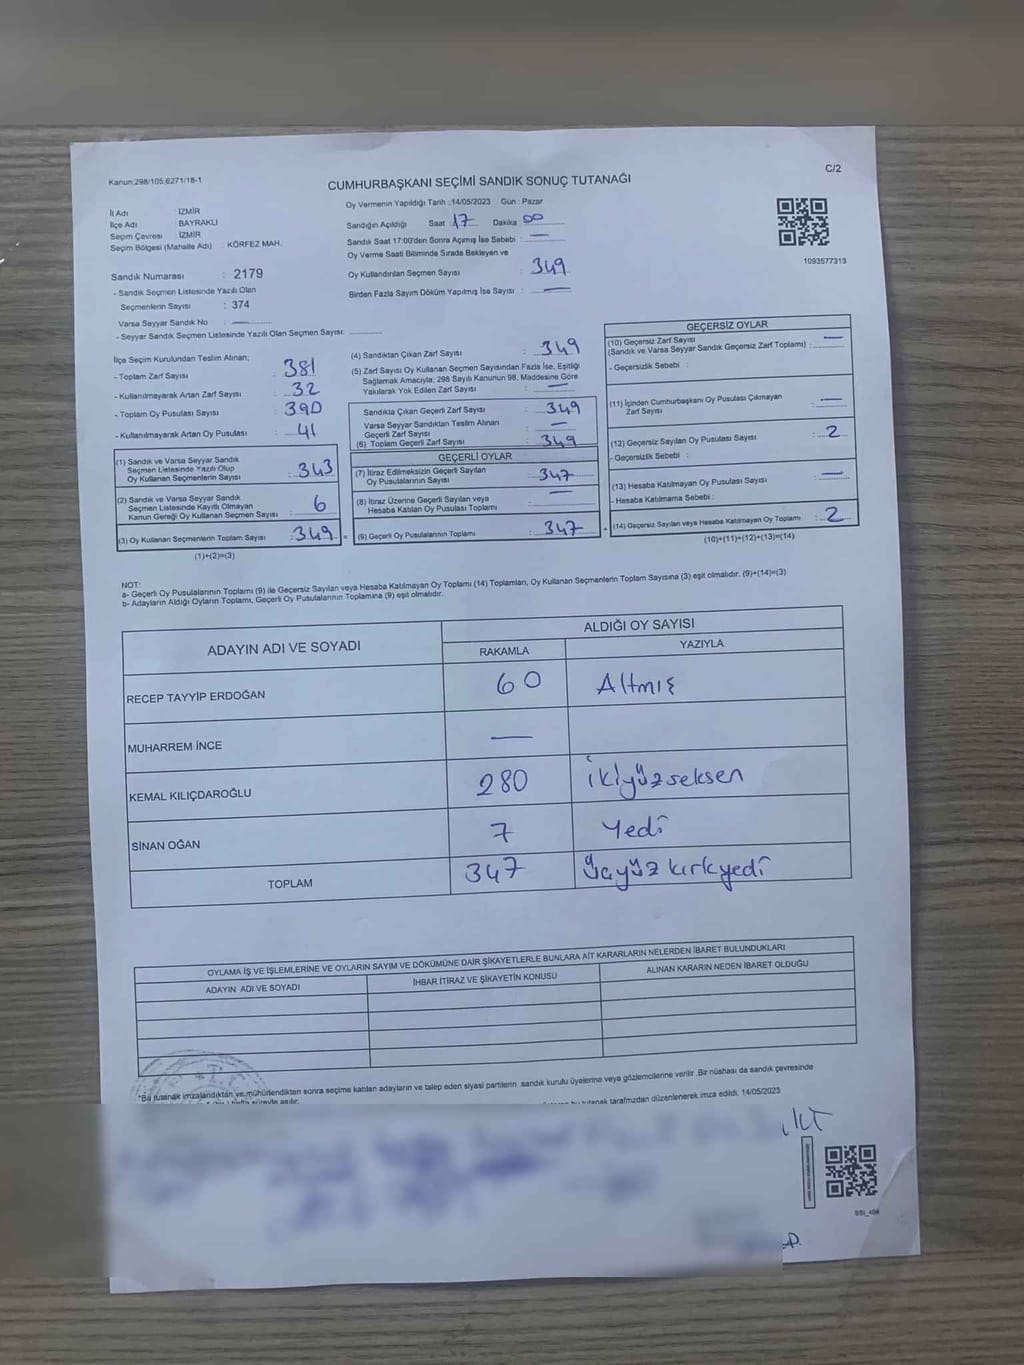 Kanun:298/105;6271/18-1
C/2
CUMHURBAŞKANI SEÇİMİ SANDIK SONUÇ TUTANAĞI
İl Adı : İZMİR
İlçe Adı : BAYRAKLI
Seçim Çevresi : İZMİR
Seçim Bölgesi (Mahalle Adı) : KÖRFEZ MAH.
Sandık Numarası : 2179
- Sandık Seçmen Listesinde Yazılı Olan
Seçmenlerin Sayısı : 374
Varsa Seyyar Sandık No : —
- Seyyar Sandık Seçmen Listesinde Yazılı Olan Seçmen Sayısı:
Oy Vermenin Yapıldığı Tarih : 14/05/2023 Gün : Pazar
Sandığın Açıldığı Saat : 17 Dakika : 00
Sandık Saat 17:00'den Sonra Açılmış İse Sebebi : —
Oy Verme Saati Bitiminde Sırada Bekleyen ve
Oy Kullandırılan Seçmen Sayısı : 349
Birden Fazla Sayım Döküm Yapılmış İse Sayısı : —
1093577313
İlçe Seçim Kurulundan Teslim Alınan;
- Toplam Zarf Sayısı : 381
- Kullanılmayarak Artan Zarf Sayısı : 32
- Toplam Oy Pusulası Sayısı : 390
- Kullanılmayarak Artan Oy Pusulası : 41
(1) Sandık ve Varsa Seyyar Sandık
Seçmen Listesinde Yazılı Olup
Oy Kullanan Seçmenlerin Sayısı : 343
(2) Sandık ve Varsa Seyyar Sandık
Seçmen Listesinde Kayıtlı Olmayan
Kanun Gereği Oy Kullanan Seçmen Sayısı : 6
(3) Oy Kullanan Seçmenlerin Toplam Sayısı : 349 =
(1)+(2)=(3)
(4) Sandıktan Çıkan Zarf Sayısı : 349
(5) Zarf Sayısı Oy Kullanan Seçmen Sayısından Fazla İse, Eşitliği
Sağlamak Amacıyla; 298 Sayılı Kanunun 98. Maddesine Göre
Yakılarak Yok Edilen Zarf Sayısı : —
Sandıkta Çıkan Geçerli Zarf Sayısı : 349
Varsa Seyyar Sandıktan Teslim Alınan
Geçerli Zarf Sayısı : —
(6) Toplam Geçerli Zarf Sayısı : 349
GEÇERLİ OYLAR
(7) İtiraz Edilmeksizin Geçerli Sayılan
Oy Pusulalarının Sayısı : 347
(8) İtiraz Üzerine Geçerli Sayılan veya
Hesaba Katılan Oy Pusulası Toplamı : —
(9) Geçerli Oy Pusulalarının Toplamı : 347 +
GEÇERSİZ OYLAR
(10) Geçersiz Zarf Sayısı
(Sandık ve Varsa Seyyar Sandık Geçersiz Zarf Toplamı) : —
- Geçersizlik Sebebi :
(11) İçinden Cumhurbaşkanı Oy Pusulası Çıkmayan
Zarf Sayısı : —
(12) Geçersiz Sayılan Oy Pusulası Sayısı : 2
- Geçersizlik Sebebi :
(13) Hesaba Katılmayan Oy Pusulası Sayısı : —
- Hesaba Katılmama Sebebi :
(14) Geçersiz Sayılan veya Hesaba Katılmayan Oy Toplamı : 2
(10)+(11)+(12)+(13)=(14)
NOT:
a- Geçerli Oy Pusulalarının Toplamı (9) ile Geçersiz Sayılan veya Hesaba Katılmayan Oy Toplamı (14) Toplamları, Oy Kullanan Seçmenlerin Toplam Sayısına (3) eşit olmalıdır. (9)+(14)=(3)
b- Adayların Aldığı Oyların Toplamı, Geçerli Oy Pusulalarının Toplamına (9) eşit olmalıdır.
ADAYIN ADI VE SOYADI
ALDIĞI OY SAYISI
RAKAMLA YAZIYLA
RECEP TAYYİP ERDOĞAN 60 Altmış
MUHARREM İNCE —
KEMAL KILIÇDAROĞLU 280 ikiyüzseksen
SİNAN OĞAN 7 Yedi
TOPLAM 347 Üçyüz kırkyedi
OYLAMA İŞ VE İŞLEMLERİNE VE OYLARIN SAYIM VE DÖKÜMÜNE DAİR ŞİKAYETLERLE BUNLARA AİT KARARLARIN NELERDEN İBARET BULUNDUKLARI
ADAYIN ADI VE SOYADI İHBAR İTİRAZ VE ŞİKAYETİN KONUSU ALINAN KARARIN NEDEN İBARET OLDUĞU
*Bu tutanak imzalandıktan ve mühürlendikten sonra seçime katılan adayların ve talep eden siyasi partilerin sandık kurulu üyelerine veya gözlemcilerine verilir .Bir nüshası da sandık çevresinde
bu tutanak tarafımızdan düzenlenerek imza edildi. 14/05/2023